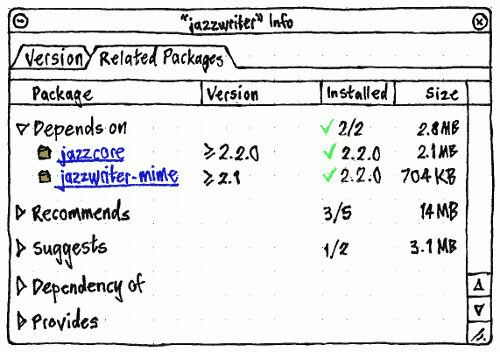 "jazzwriter" Info
Version Related Packages
Package Version Installed Size
Depends on 2/2 2.8MB
jazzcore ≥2.2.0 2.2.0 2.1MB
jazzwriter-mime ≥2.1 2.2.0 704KB
Recommends 3/5 14MB
Suggests 1/2 3.1MB
Dependency of
Provides